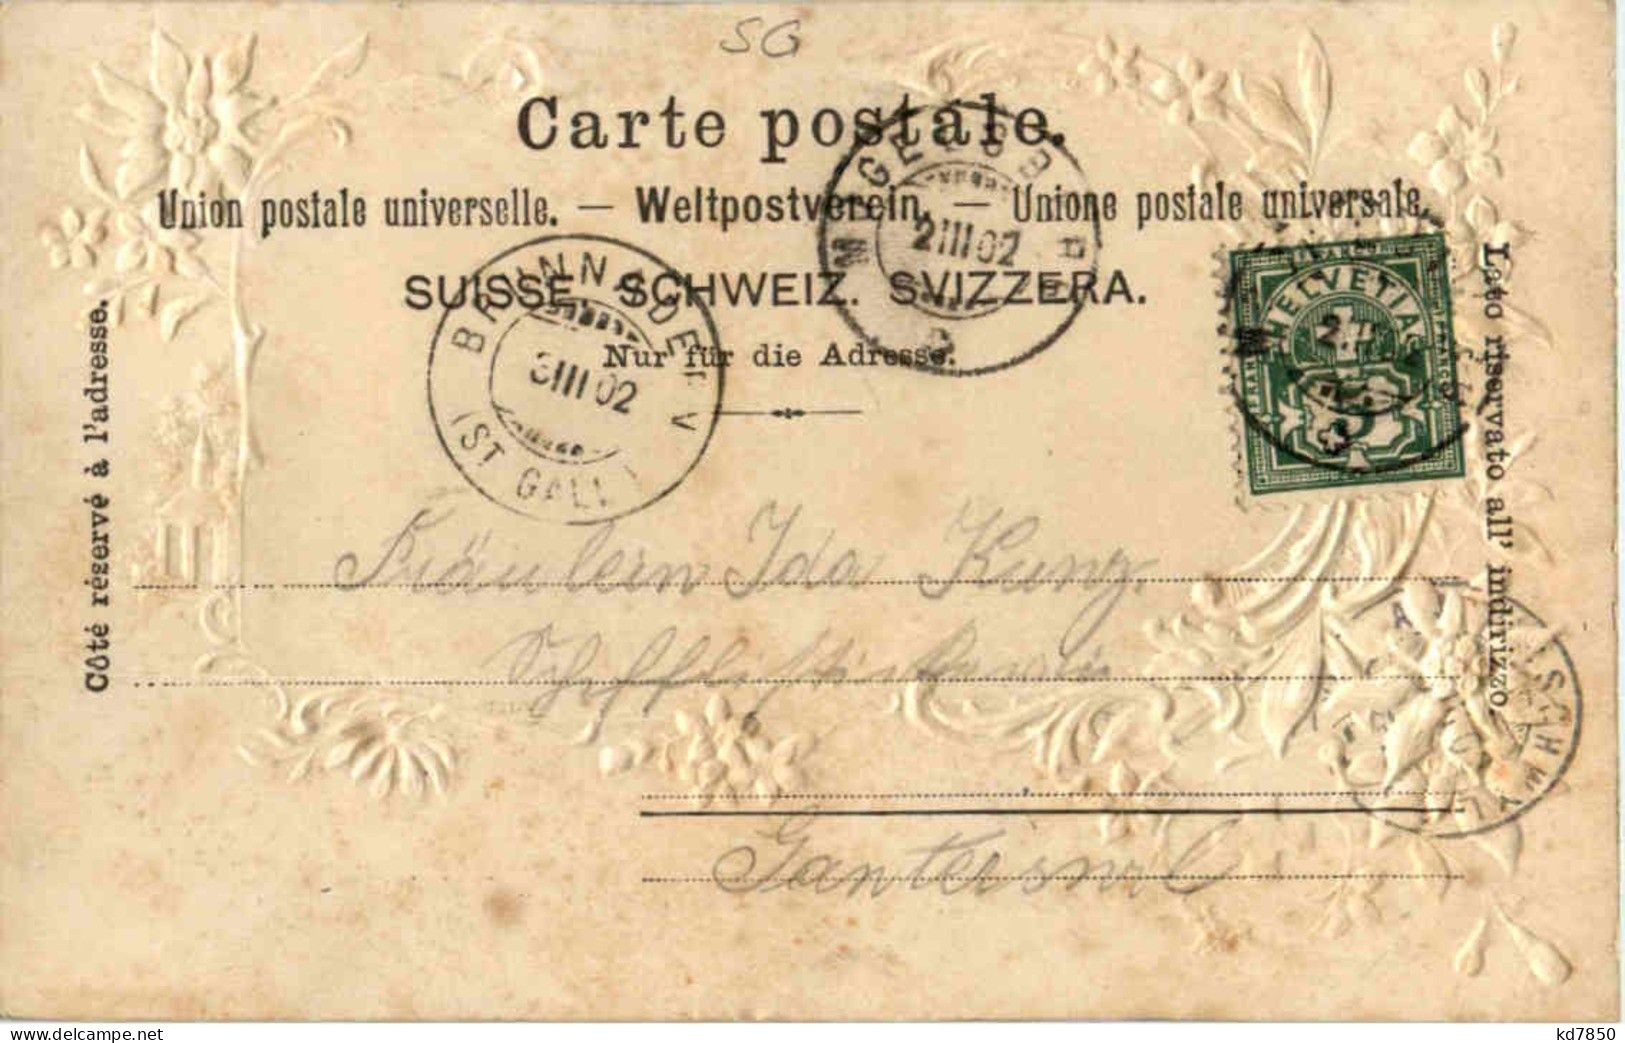 SG
Carte postale.
Union postale universelle. — Weltpostverein. — Unione postale universale.
SUISSE. SCHWEIZ. SVIZZERA.
Nur für die Adresse.
Côté réservé à l'adresse.
Lato riservato all' indirizzo.
2 III 02
BRUNNADERN
3 III 02
(ST GALL)
HELVETIA
FRANCO
5
Fräulein Ida Kunz
Ganterswil
kd7850